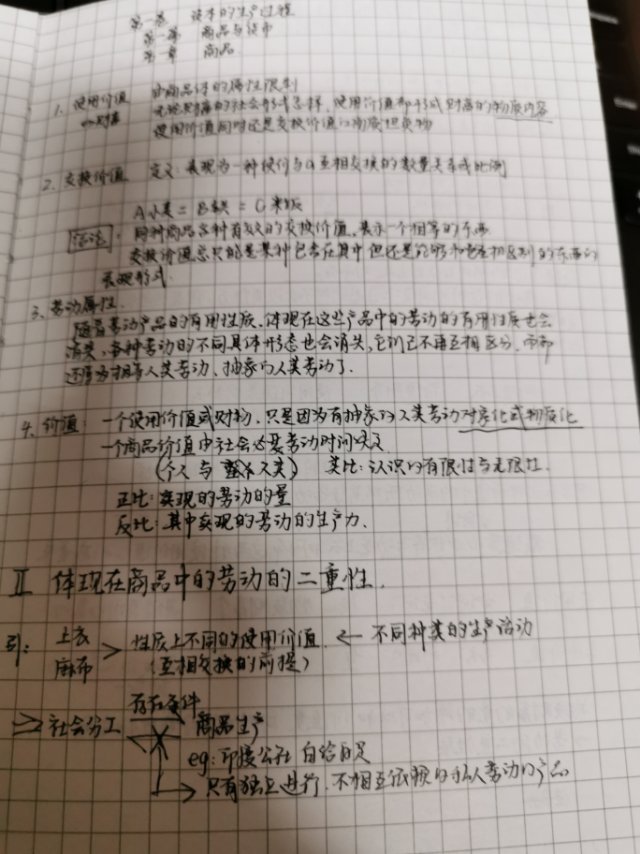 第一卷 资本的生产过程
第一篇 商品与货币
第一章 商品
1. 使用价值 由商品体的属性限制
or财富 无论财富的社会形式怎样,使用价值都构成财富的物质内容
使用价值同时还是交换价值的物质担负物
2. 交换价值 定义:表现为一种使价与a互相交换的数量关系或比例
A小麦 = B = C
结论: 同种商品各种有效的交换价值,表示一个相等的东西
交换价值总只能是某种包含在其中但还是能够和它互相区别的东西的
表现形式.
3. 劳动属性.
随着劳动产品的有用性质,体现在这些产品中的劳动的有用性质也会
消失,各种劳动的不同具体形态也会消失,它们已不再互相区分,而都
还原为相等人类劳动、抽象的人类劳动了.
4. 价值: 一个使用价值或财物,只是因为有抽象的人类劳动对象化或物质化
一个商品价值由社会必要劳动时间决定
(个人与整个人类) 类比:认识的有限性与无限性.
正比:实现的劳动的量
反比:其中实现的劳动的生产力.
II 体现在商品中的劳动的二重性.
引: 上衣 麻布 > 性质上不同的使用价值 ← 不同种类的生产活动
(互相交换的前提)
⇒ 社会分工 存在条件 商品生产
eg:印度公社 自给自足
→ 只有独立进行.不相互依赖的私人劳动的产品